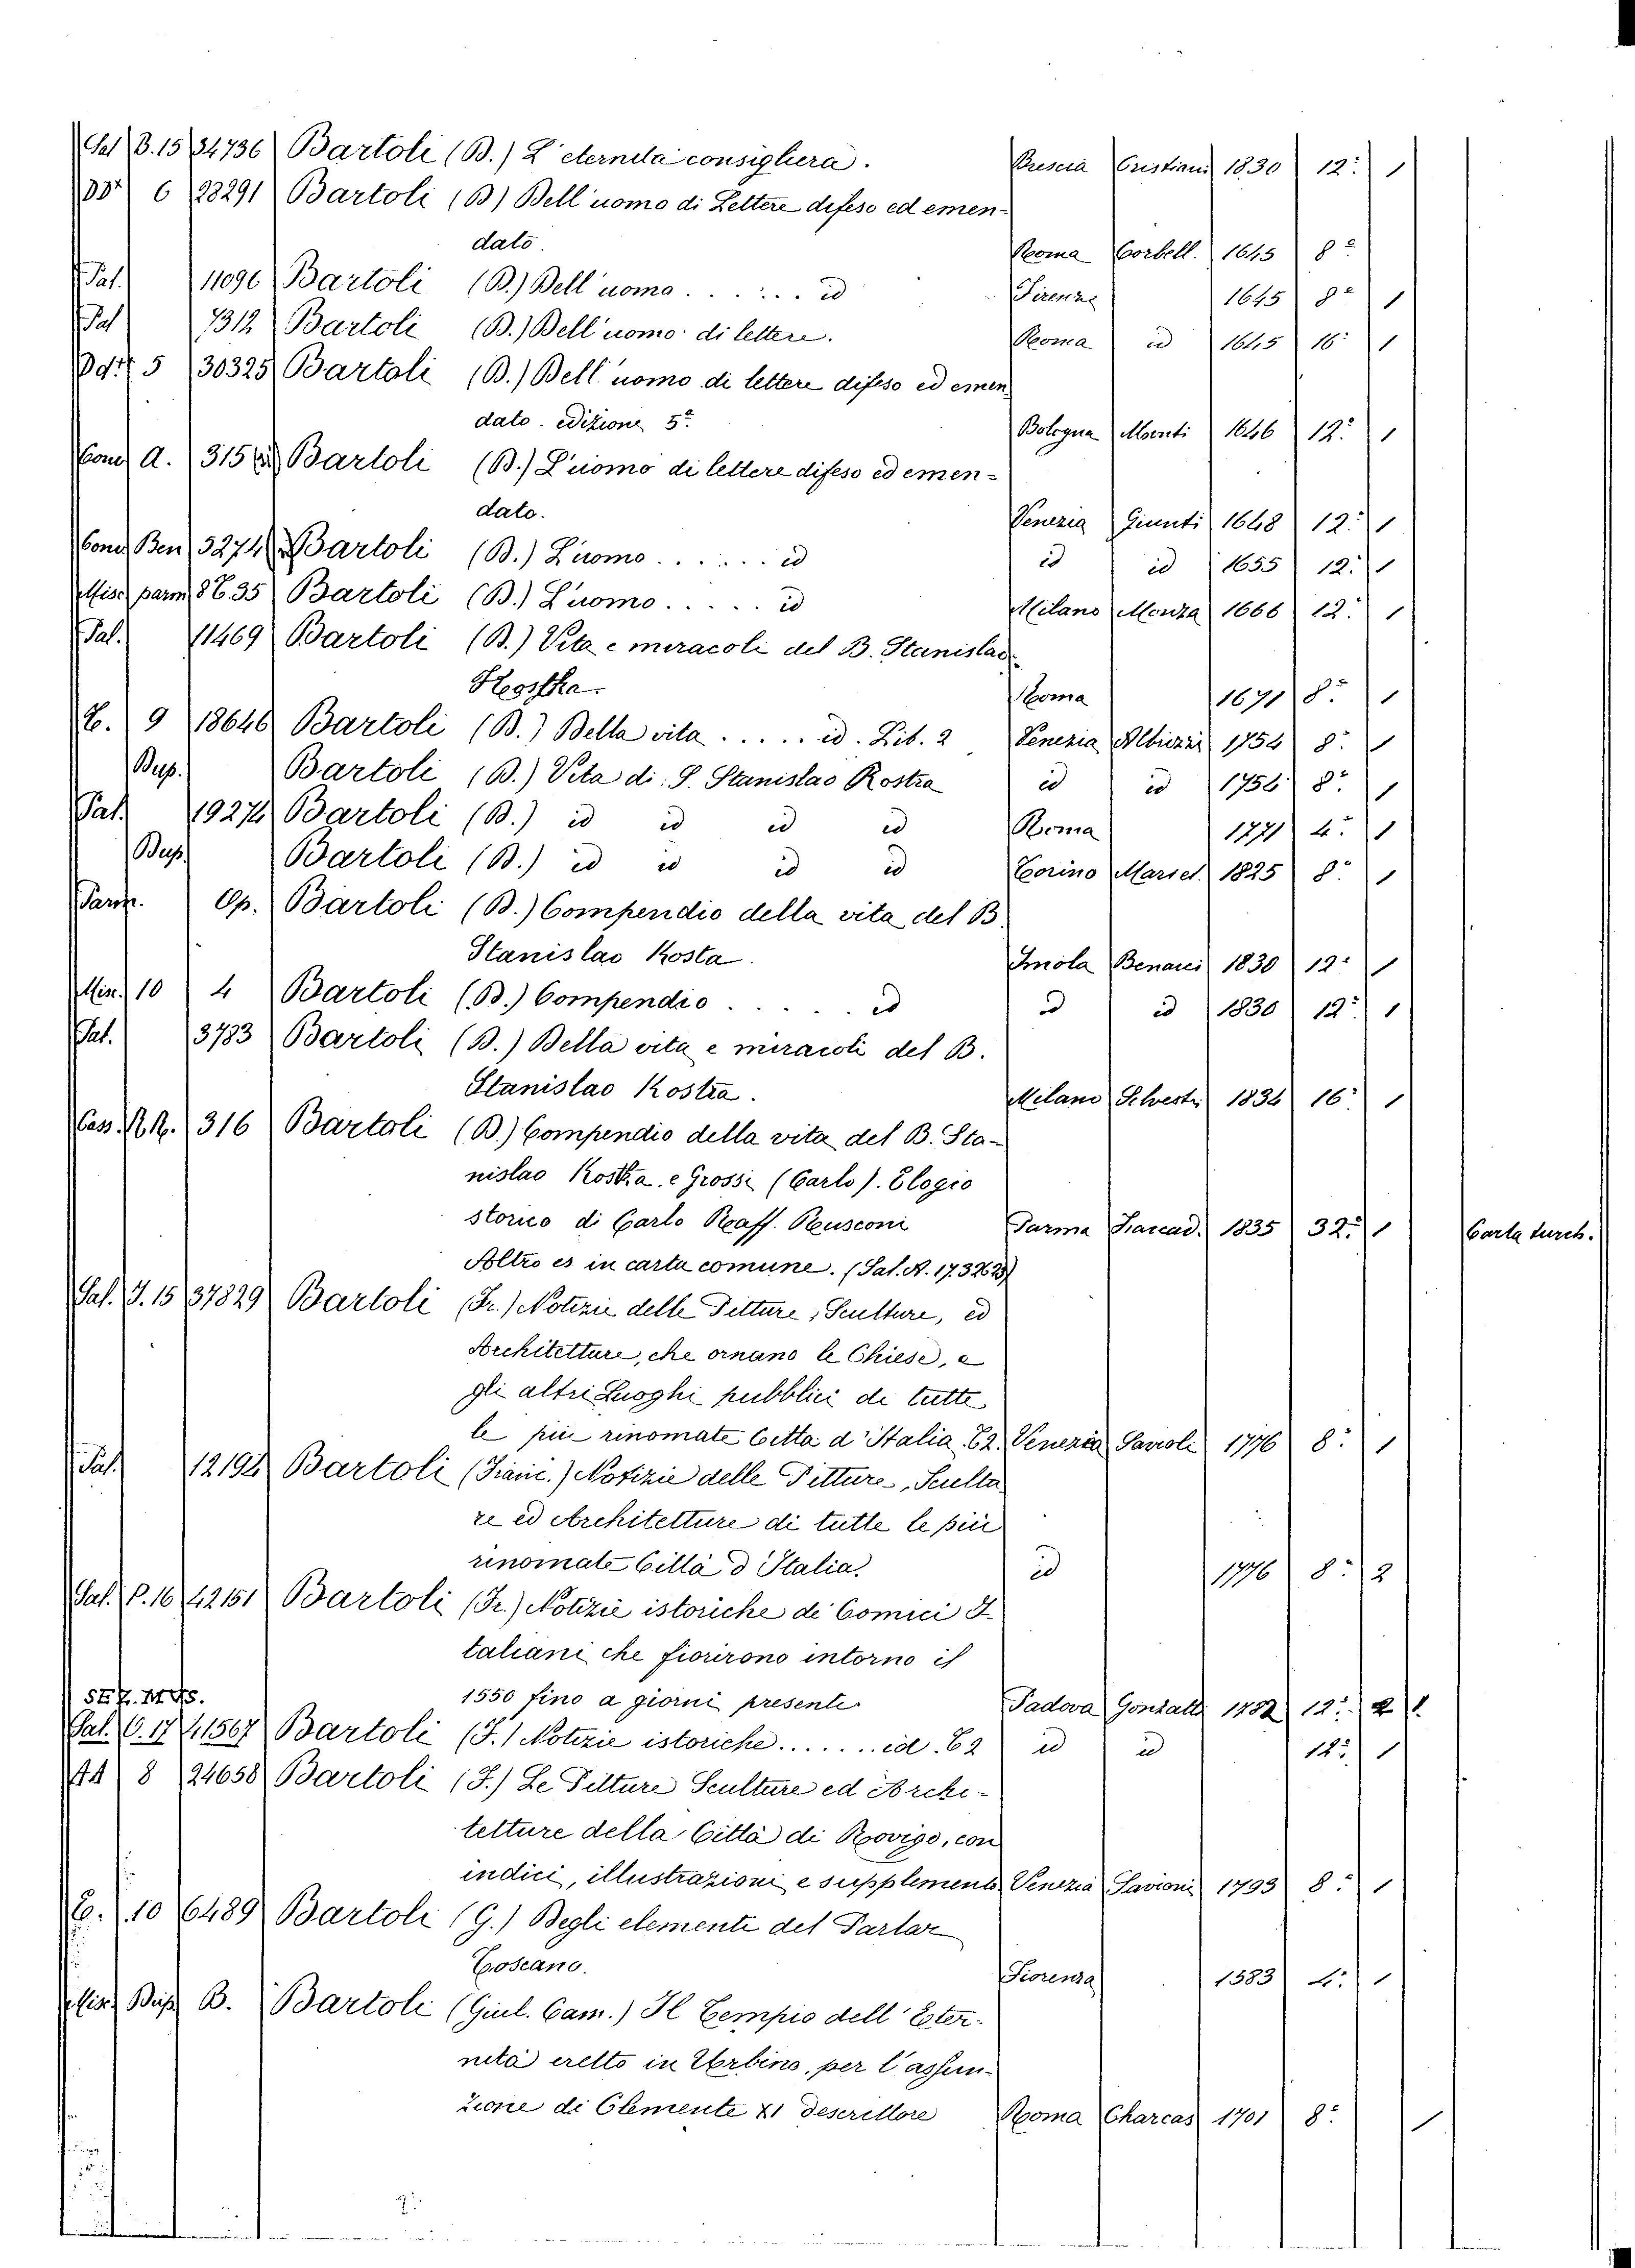 Sal B. 15 34736 Bartoli (B.) L'eternità consigliera. Brescia Cristiani 1830 12.° 1
6 28291 Bartoli (B) Dell'uomo di Lettere difeso ed emen-
dato. Roma Corbell. 1645 8°
Pal. 11096 Bartoli (B.) Dell'uomo . . . . . . id Firenze 1645 8° 1
Pal 7312 Bartoli (B.) Dell'uomo di lettere. Roma id 1645 16° 1
5 30325 Bartoli (B.) Dell'uomo di lettere difeso ed emen
dato. edizione 5ª Bologna Monti 1646 12.° 1
Com A. 315 Bartoli (B.) L'uomo di lettere difeso ed emen-
dato. Venezia Giunti 1648 12.° 1
Com Ben 3274 Bartoli (B.) L'uomo . . . . . . id id id 1655 12.° 1
Misc parm 8 T. 35 Bartoli (B.) L'uomo . . . . . id Milano Monza 1666 12.° 1
Pal. 11469 Bartoli (B.) Vita e miracoli del B. Stanislao
Kostka. Roma 1671 8.° 1
T. 9 18646 Bartoli (B.) Della vita . . . . . id. Lib. 2 Venezia Albizzi 1754 8.° 1
Bup. Bartoli (B.) Vita di S. Stanislao Rostra id id 1756 8.° 1
Pal. 19274 Bartoli (B.) id id id id Roma 1771 4.° 1
Bup. Bartoli (B.) id id id id Torino Mariet. 1825 8.° 1
Parm. Op. Bartoli (B.) Compendio della vita del B.
Stanislao Kosta. Imola Benacci 1830 12.° 1
Misc. 10 4 Bartoli (B.) Compendio . . . . . id id id 1830 12.° 1
Pal. 3783 Bartoli (B.) Della vita e miracoli del B.
Stanislao Kostra. Milano Silvestri 1834 16.° 1
Cass. R.R. 316 Bartoli (B.) Compendio della vita del B. Sta-
nislao Kostka. e Grossi (Carlo). Elogio
storico di Carlo Raff. Rusconi Parma Fiaccad. 1835 32.° 1 Carta turch.
Altro es in carta comune. (Sal. A. 17.32623)
Sal. I. 15 37829 Bartoli (Fr.) Notizie delle Pitture, Sculture, ed
Architetture, che ornano le Chiese, e
gli altri Luoghi pubblici di tutte
le più rinomate Città d'Italia. T2. Venezia Savioli 1776 8.° 1
Pal. 12194 Bartoli (Franc.) Notizie delle Pitture, Scultu
re ed Architetture di tutte le più
rinomate Città d'Italia. id 1776 8.° 2
Sal. P. 16 42151 Bartoli (Fr.) Notizie istoriche de' Comici I
taliani che fiorirono intorno il
1550 fino a giorni presenti Padova Gonzatti 1782 12.° 1
Sal. C. 17 41567 Bartoli (F.) Notizie istoriche . . . . . . id. T2 id id 12.° 1
AA 8 24658 Bartoli (F.) Le Pitture Sculture ed Archi-
tetture della Città di Rovigo, con
indici, illustrazioni e supplementi Venezia Savioni 1793 8.° 1
T. 10 6489 Bartoli (G.) Degli elementi del Parlar
Toscano. Fiorenza 1583 4.° 1
Misc. Bup. B. Bartoli (Giul. Cam.) Il Tempio dell'Eter-
nità eretto in Urbino, per l'assun-
zione di Clemente XI descrittore Roma Charcas 1701 8.° 1